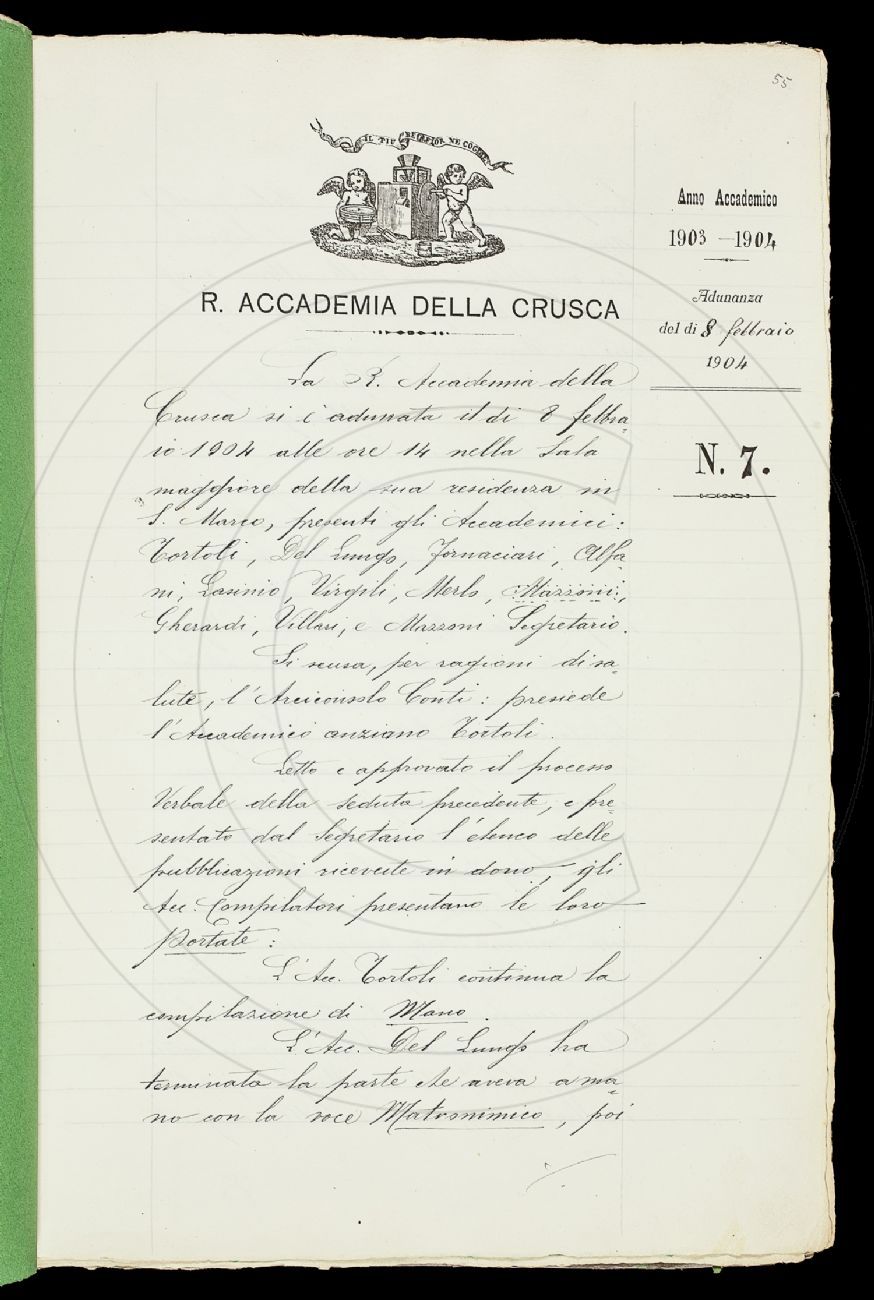 55
IL PIÙ BEL FIOR NE COGLIE
Anno Accademico
1903 — 1904
Adunanza
del dì 8 febbraio
1904
R. ACCADEMIA DELLA CRUSCA
N. 7.
La R. Accademia della
Crusca si è adunata il dì 8 febbra=
io 1904 alle ore 14 nella Sala
maggiore della sua residenza in
S. Marco, presenti gli Accademici:
Tortoli, Del Lungo, Fornaciari, Alfa=
ni, Lasinio, Virgili, Merlo, Mazzoni,
Gherardi, Villari, e Mazzoni Segretario.
Si scusa, per ragioni di sa=
lute, l'Arciconsolo Conti: presiede
l'Accademico anziano Tortoli.
Letto e approvato il processo
Verbale della seduta precedente, e pre=
sentato dal Segretario l'elenco delle
pubblicazioni ricevute in dono, gli
Acc. Compilatori presentano le loro
portate:
L'Acc. Tortoli continua la
compilazione di Mano.
L'Acc. Del Lungo ha
terminata la parte che aveva a ma=
no con la voce Matronimico, poi